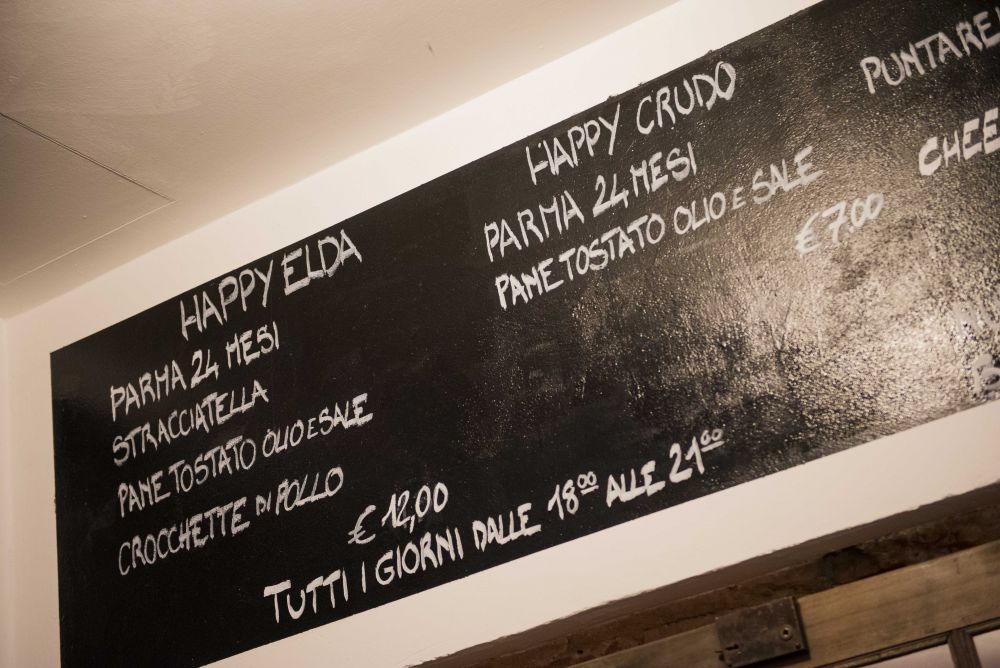 HAPPY ELDA
PARMA 24 MESI
STRACCIATELLA
PANE TOSTATO OLIO E SALE
CROCCHETTE DI POLLO
€ 12,00
HAPPY CRUDO
PARMA 24 MESI
PANE TOSTATO OLIO E SALE
€ 7.00
PUNTARE
CHEE
TUTTI I GIORNI DALLE 18⁰⁰ ALLE 21⁰⁰